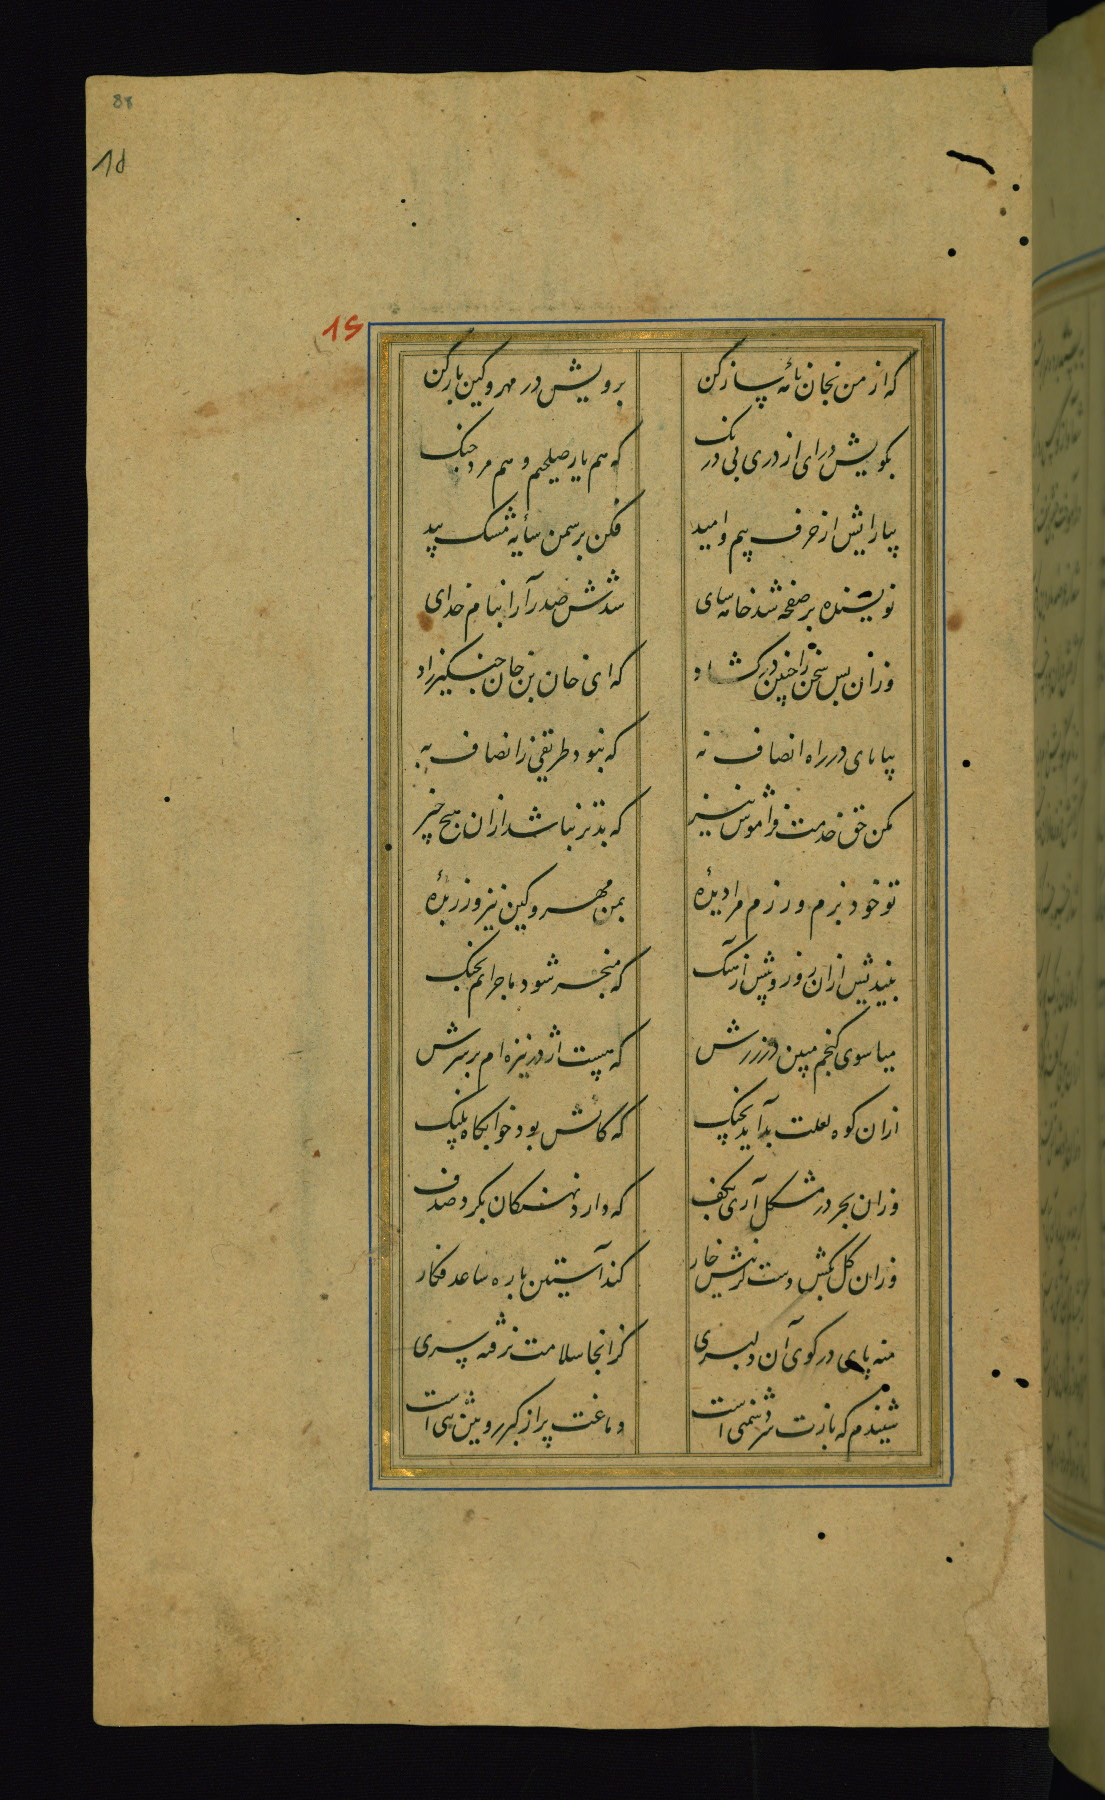 که از من نجان نامهٔ ساز کن برویش در مهر و کین باز کن
بکویش درای از دری بی درنک که هم یار صلحیم و هم مرد جنک
بیارایش از حرف بیم و امید فکن بر سمن سایهٔ مشک بید
نویسنده بر صفحه شد خامه سای شدش صدر آرا بنام خدای
وزان پس سخن را چنین در کشاد که ای خان بن خان چنکیز زاد
بیا پای در راه انصاف نه که نبود طریقی ز انصاف به
مکن حق خدمت فراموش نیز که بدتر نباشد ازان هیچ چیز
تو خود بزم و رزم مرا دیدهٔ بمن مهر و کین نیز ورزیدهٔ
بیندیش ازان روز و پیش آر سنک که منجر شود ماجرایم بجنک
میا سوی کنجم مبین در زرش که هست اژدر نیزه ام بر سرش
ازان کوه لعلت بد آید بچنک که کانش بود خوابکاه پلنک
وزان بحر در مشکل آری بکف که دارد نهنکان بکرد صدف
وزان کل بکش دست کز نیش خار کند آستین پاره ساعد فکار
منه پای در کوی آن دلبری کز انجا سلامت نرفته سری
شنیدم که بازت سر دشمنی است دماغت پر از کبر و بیش منی است